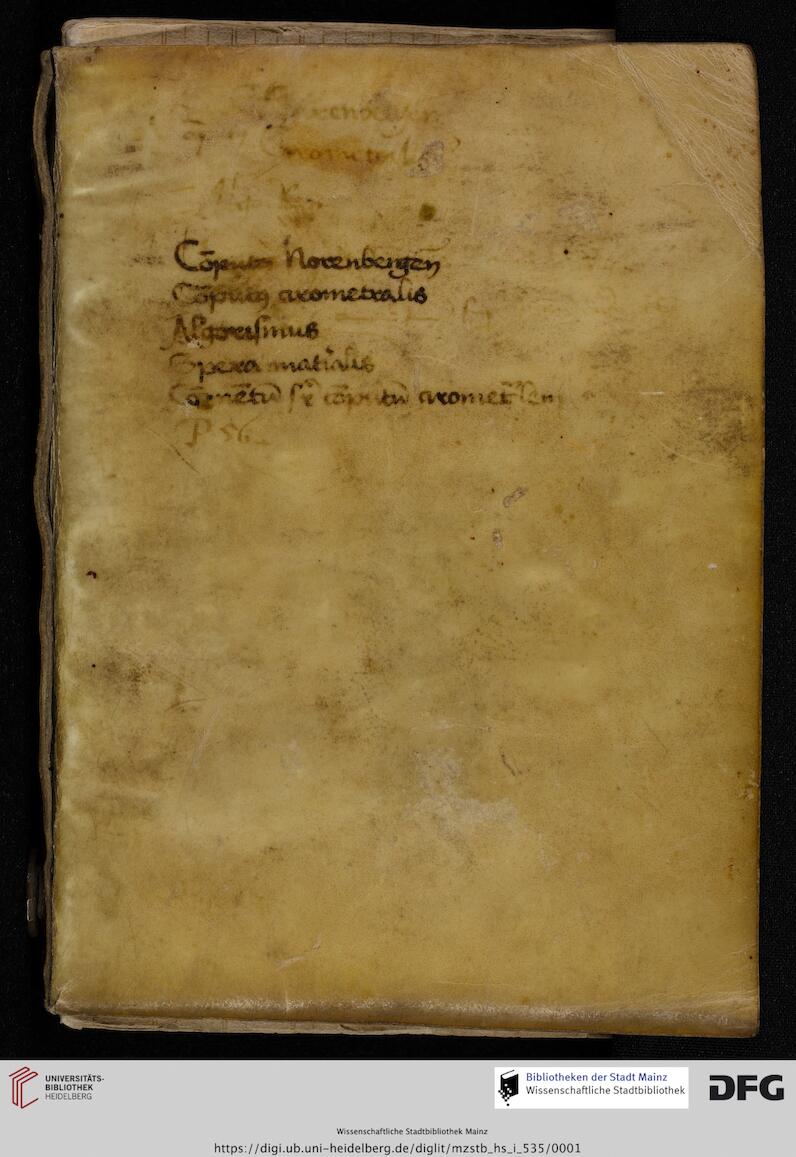 Cōputꝯ Norenbergeñ
Cōputꝯ cirometralis
Algorismus
Spera mat'ialis
Cōmētū sr̄ cōputū cirometᵃlem
P 56
UNIVERSITÄTS-
BIBLIOTHEK
HEIDELBERG
Bibliotheken der Stadt Mainz
Wissenschaftliche Stadtbibliothek
DFG
Wissenschaftliche Stadtbibliothek Mainz
https://digi.ub.uni-heidelberg.de/diglit/mzstb_hs_i_535/0001